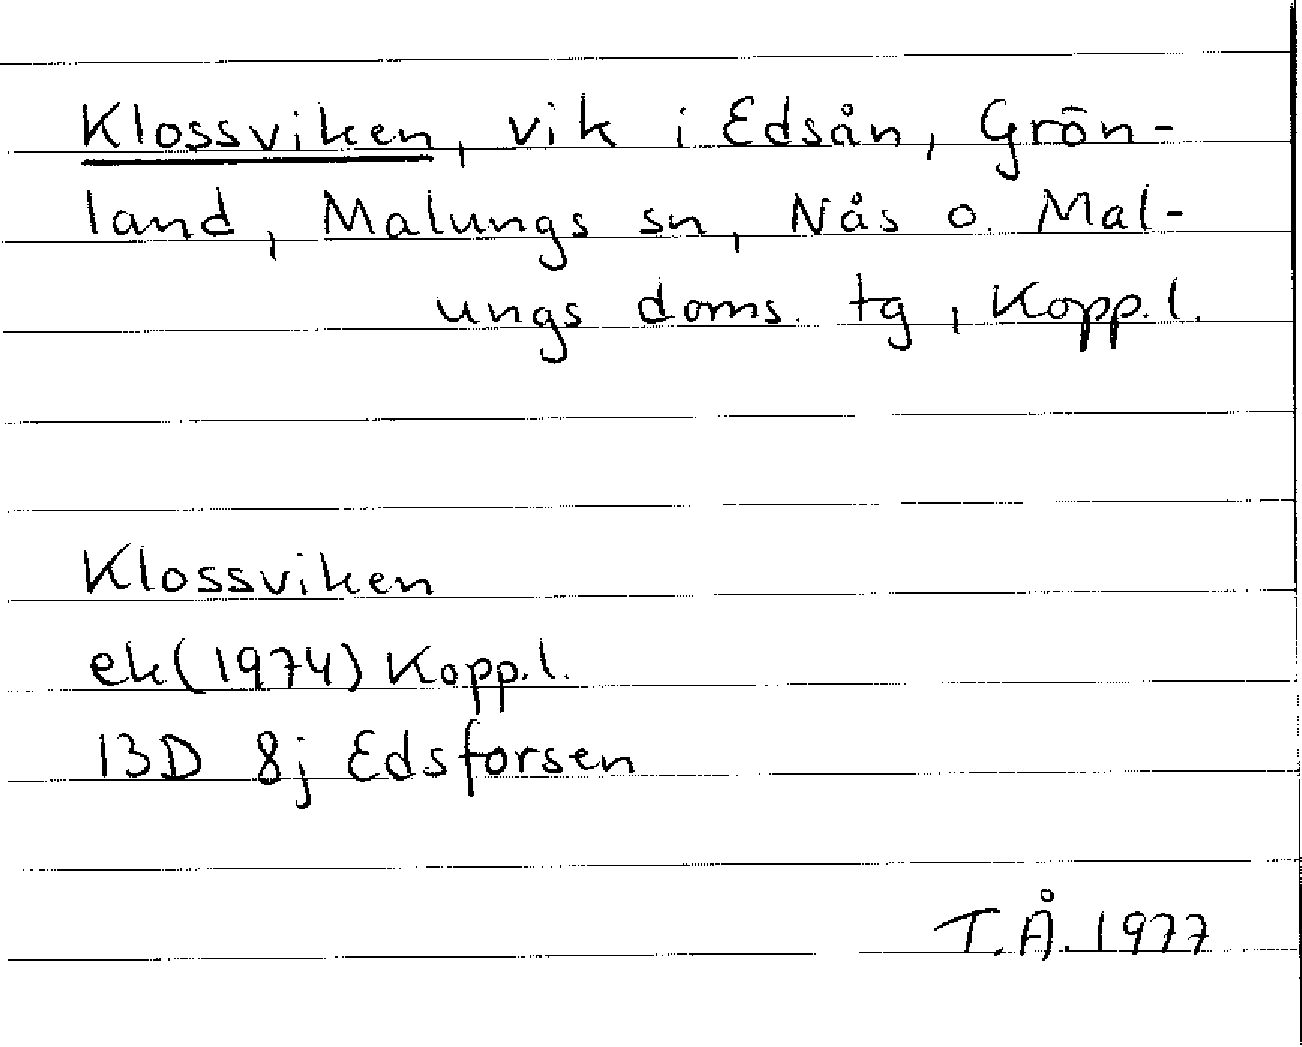 Klossviken, vik i Edsån, Grön-
land, Malungs sn, Nås o. Mal-
ungs doms. tg, Kopp.l.
Klossviken
ek(1974) Kopp.l.
13D 8j Edsforsen
T.Å. 1977